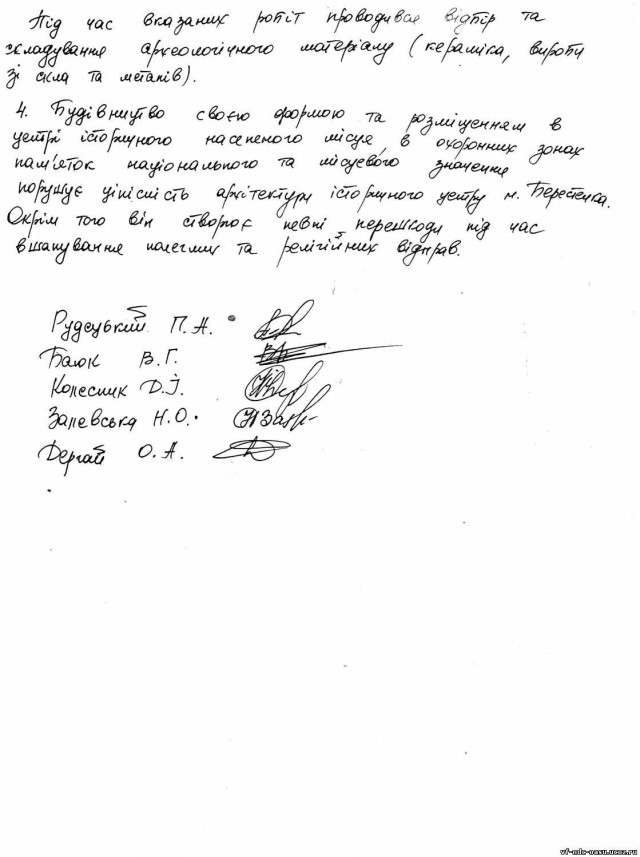 Під час вказаних робіт проводився відбір та
складування археологічного матеріалу (кераміка, вироби
зі скла та металів).
4. Будівництво своєю формою та розміщенням в
центрі історичного населеного місця, в охоронних зонах
пам'яток національного та місцевого значення
порушує цілісність архітектури історичного центру м. Берестечка.
Окрім того він створює певні перешкоди під час
вшанування полеглих та релігійних відправ.
Рудецький П. А.
Балюк В. Г.
Колесник Д. І.
Залевська Н. О.
Дергай О. А.
vf-ndc-oasu.ucoz.ru